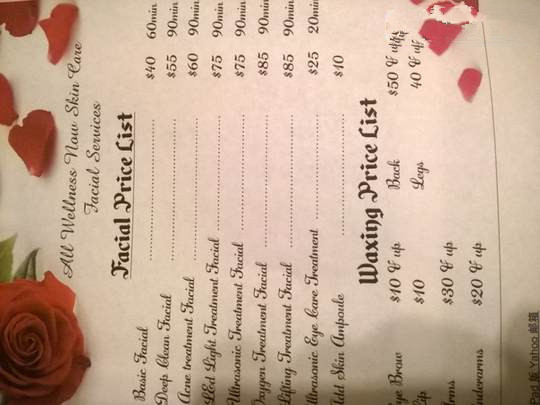 All Wellness Now Skin Care
Facial Services
Facial Price List
Basic Facial $40 60min
Deep Clean Facial $55 90min
Acne treatment Facial $60 90min
LEd Light Treatment Facial $75 90min
Ultrasonic Treatment Facial $75 90min
Oxygen Treatment Facial $85 90min
Lifting Treatment Facial $85 90min
Ultrasonic Eye Care Treatment $25 20min
Add Skin Ampoule $10
Waxing Price List
Eye Brow $10 & up Back $50 & up
Lip $10 Legs 40 & up
Arms $30 & up
Underarms $20 & up
iPad 版 Yahoo 邮箱